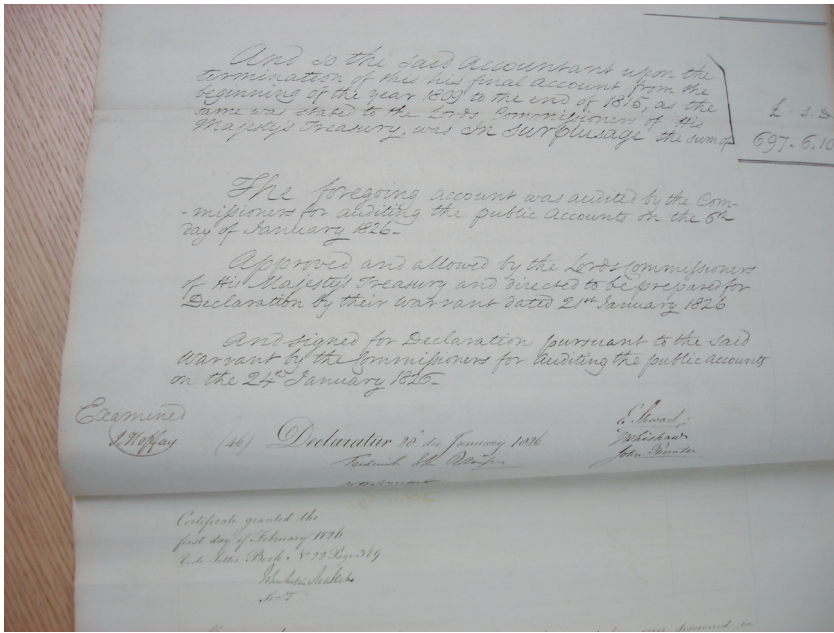 And so the said Accountant upon the
termination of this his final Account from the
beginning of the year 1809 to the end of 1815, as the
same was stated to the Lords Commissioners of His
Majesty's Treasury, was In Surplusage the sum of
£ . S. D
697.6.10
The foregoing account was audited by the Com-
-missioners for auditing the public Accounts on the 6th
day of January 1826_
Approved and allowed by the Lords Commissioners
of His Majesty's Treasury and directed to be prepared for
Declaration by their Warrant dated 21st January 1826
And signed for Declaration pursuant to the said
Warrant by the Commissioners for Auditing the public Accounts
on the 24th January 1826_
Examined
(46) Declaratur 28° die January 1826
John
Certificate granted the
first day of February 1826
Vide Letter Book No 22 Page 369